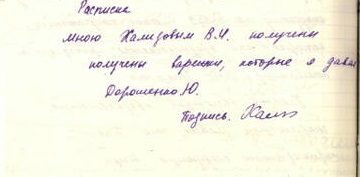 Расписка
Мною Хамидовым В.Ч. получены
получены варежки, которые я давал
Дорошенко Ю.
Подпись. Хам